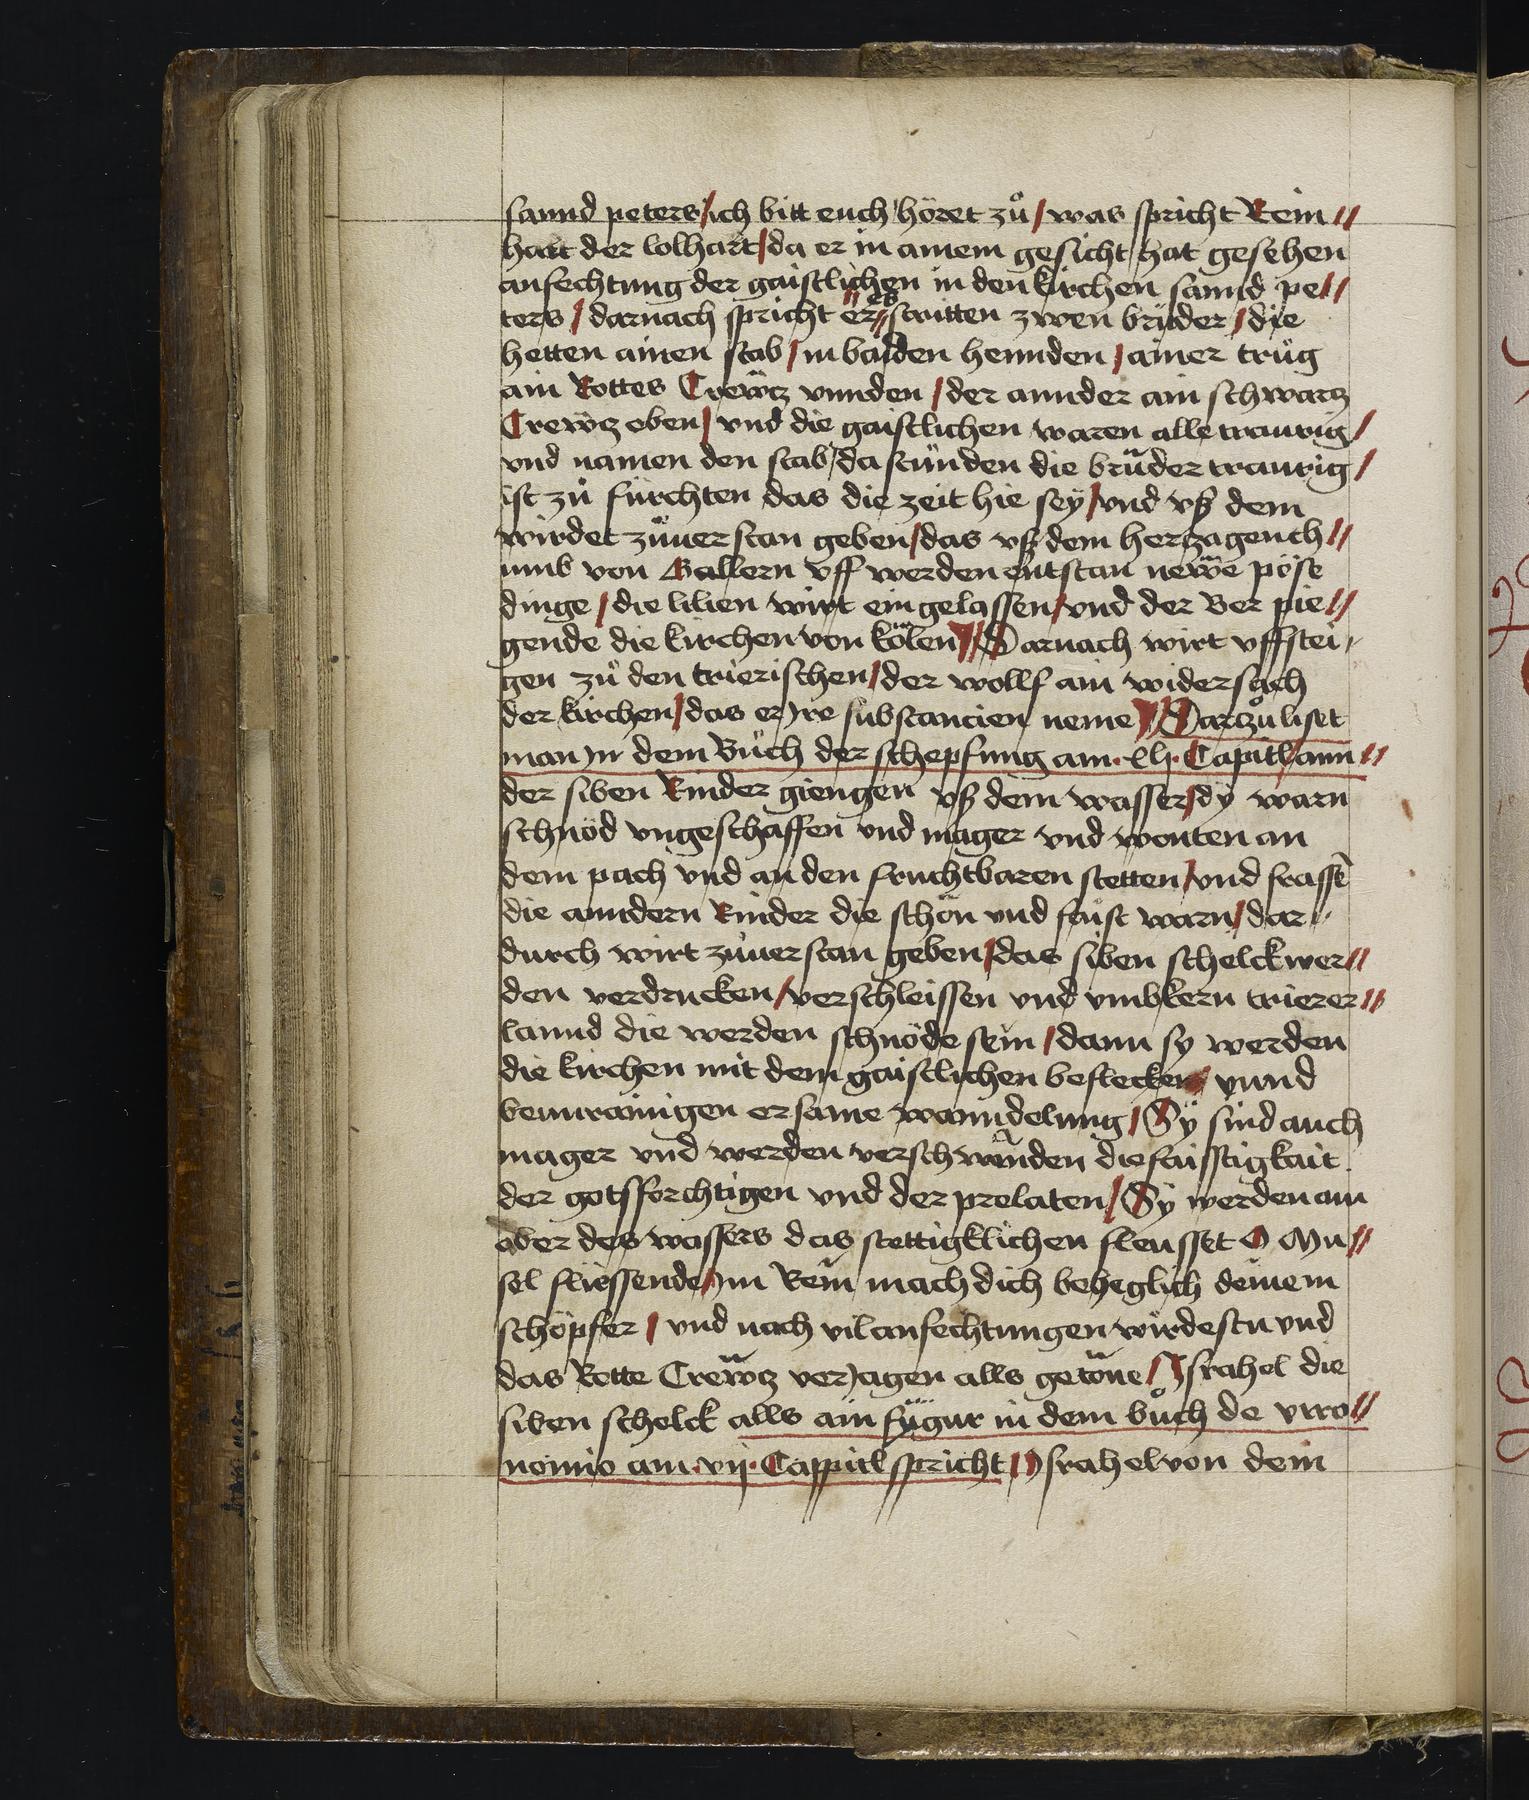 sannd peters / ich bitt euch höret zů / was spricht Rein //
hart der lolhart / da er in ainem gesicht hat gesehen
anfechtung der gaistlichen in den kirchen sannd pe //
ters / darnach spricht er // es stritten zwen brüder / die
hetten ainen stab / in baiden hennden / ainer trüg
ain Rottes Crewcz vnnden / der annder ain schwarcz
Crewcz oben / vnd die gaistlichen waren alle traurig /
vnd namen den stab / da stůnden die brüder traurig /
ist zů fürchten das die zeit hie sey / vnd vß dem
wirdet zůuerstan geben / das vß dem herczagenth //
umb von Ballern vff werden entstan newe pöse
dinge / die lilien wirt ein gelassen / vnd der Ber pie //
gende die kirchen von kölen // Darnach wirt vffstei
gen zů den trierischen / der wollf ain widersach
der kirchen / das er yre substancien neme // Darzů liset
man yn dem Bůch der schepfung am · xlj · Capitl ann //
der siben Rinder giengen vß dem wasser / dÿ warn
schnöd vngeschaffen vnd mager vnd wonten an
dem pach vnd an den fruchtbaren stetten / vnd frassē
die anndern Rinder die schön vnd faist warn / dar
durch wirt zůuerstan geben / das siben schelck wer //
den verdrucken / verschleissen vnd vmbkern trierer //
lannd die werden schnöde sein / dann sy werden
die kirchen mit dem gaistlichen beflecken / vnnd
beunrainigen ersame wanndelung / Sÿ sind auch
mager vnd werden verschwenden die faisstigkait
der gotsforchtigen vnd der prelaten / Sÿ werden am
ober des wassers das stettigklichen fleusset O Mu //
sel fliessende / ym Rein mach dich beheglich deinem
schöpfer / vnd nach vil anfechtungen wirdestu vnd
das Rotte Crewcz veryagen alls getöne / Ysrahel die
siben schelck alls ain fygur in dem bůch de vtro //
nomio am · vij · Cappitl spricht / Ysrahel von dein